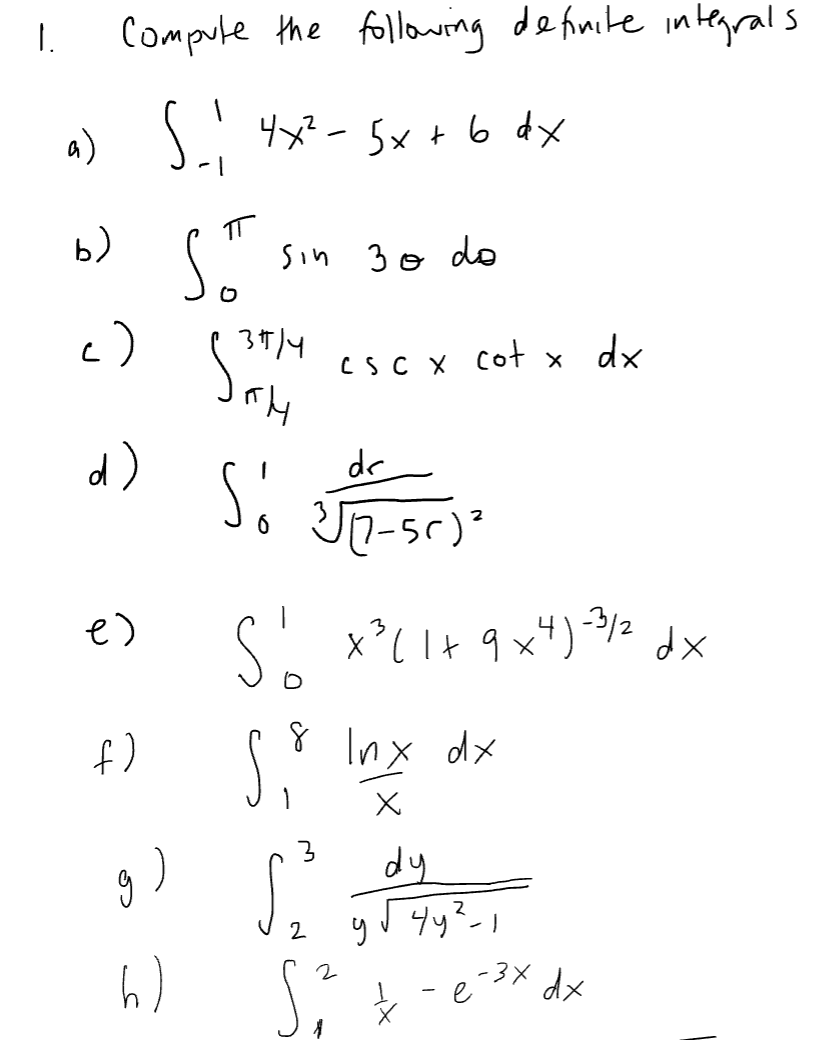 1. Compute the following definite integrals
a) ∫_{-1}^{1} 4x² - 5x + 6 dx
b) ∫_{0}^{π} sin 3θ dθ
c) ∫_{π/4}^{3π/4} csc x cot x dx
d) ∫_{0}^{1} dr / ∛(7-5r)²
e) ∫_{0}^{1} x³(1+9x⁴)^{-3/2} dx
f) ∫_{1}^{8} ln x / x dx
g) ∫_{2}^{3} dy / y√(4y²-1)
h) ∫_{1}^{2} 1/x - e^{-3x} dx